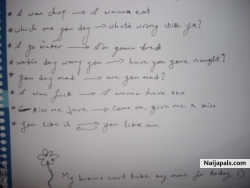 • I wan chop → I wanna eat
• which one you dey → what's wrong with ya?
• I go water → I'm gonna drink
• you dey mad → are you mad?
• I wan fuck → I wanna have sex
• Kiss me jare → Come on, give me a kiss
• you like it you like am
My brains can't take any more for today
Naijapals.com